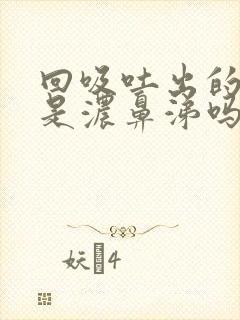 回吸吐出的
是浓鼻涕吗
妖4